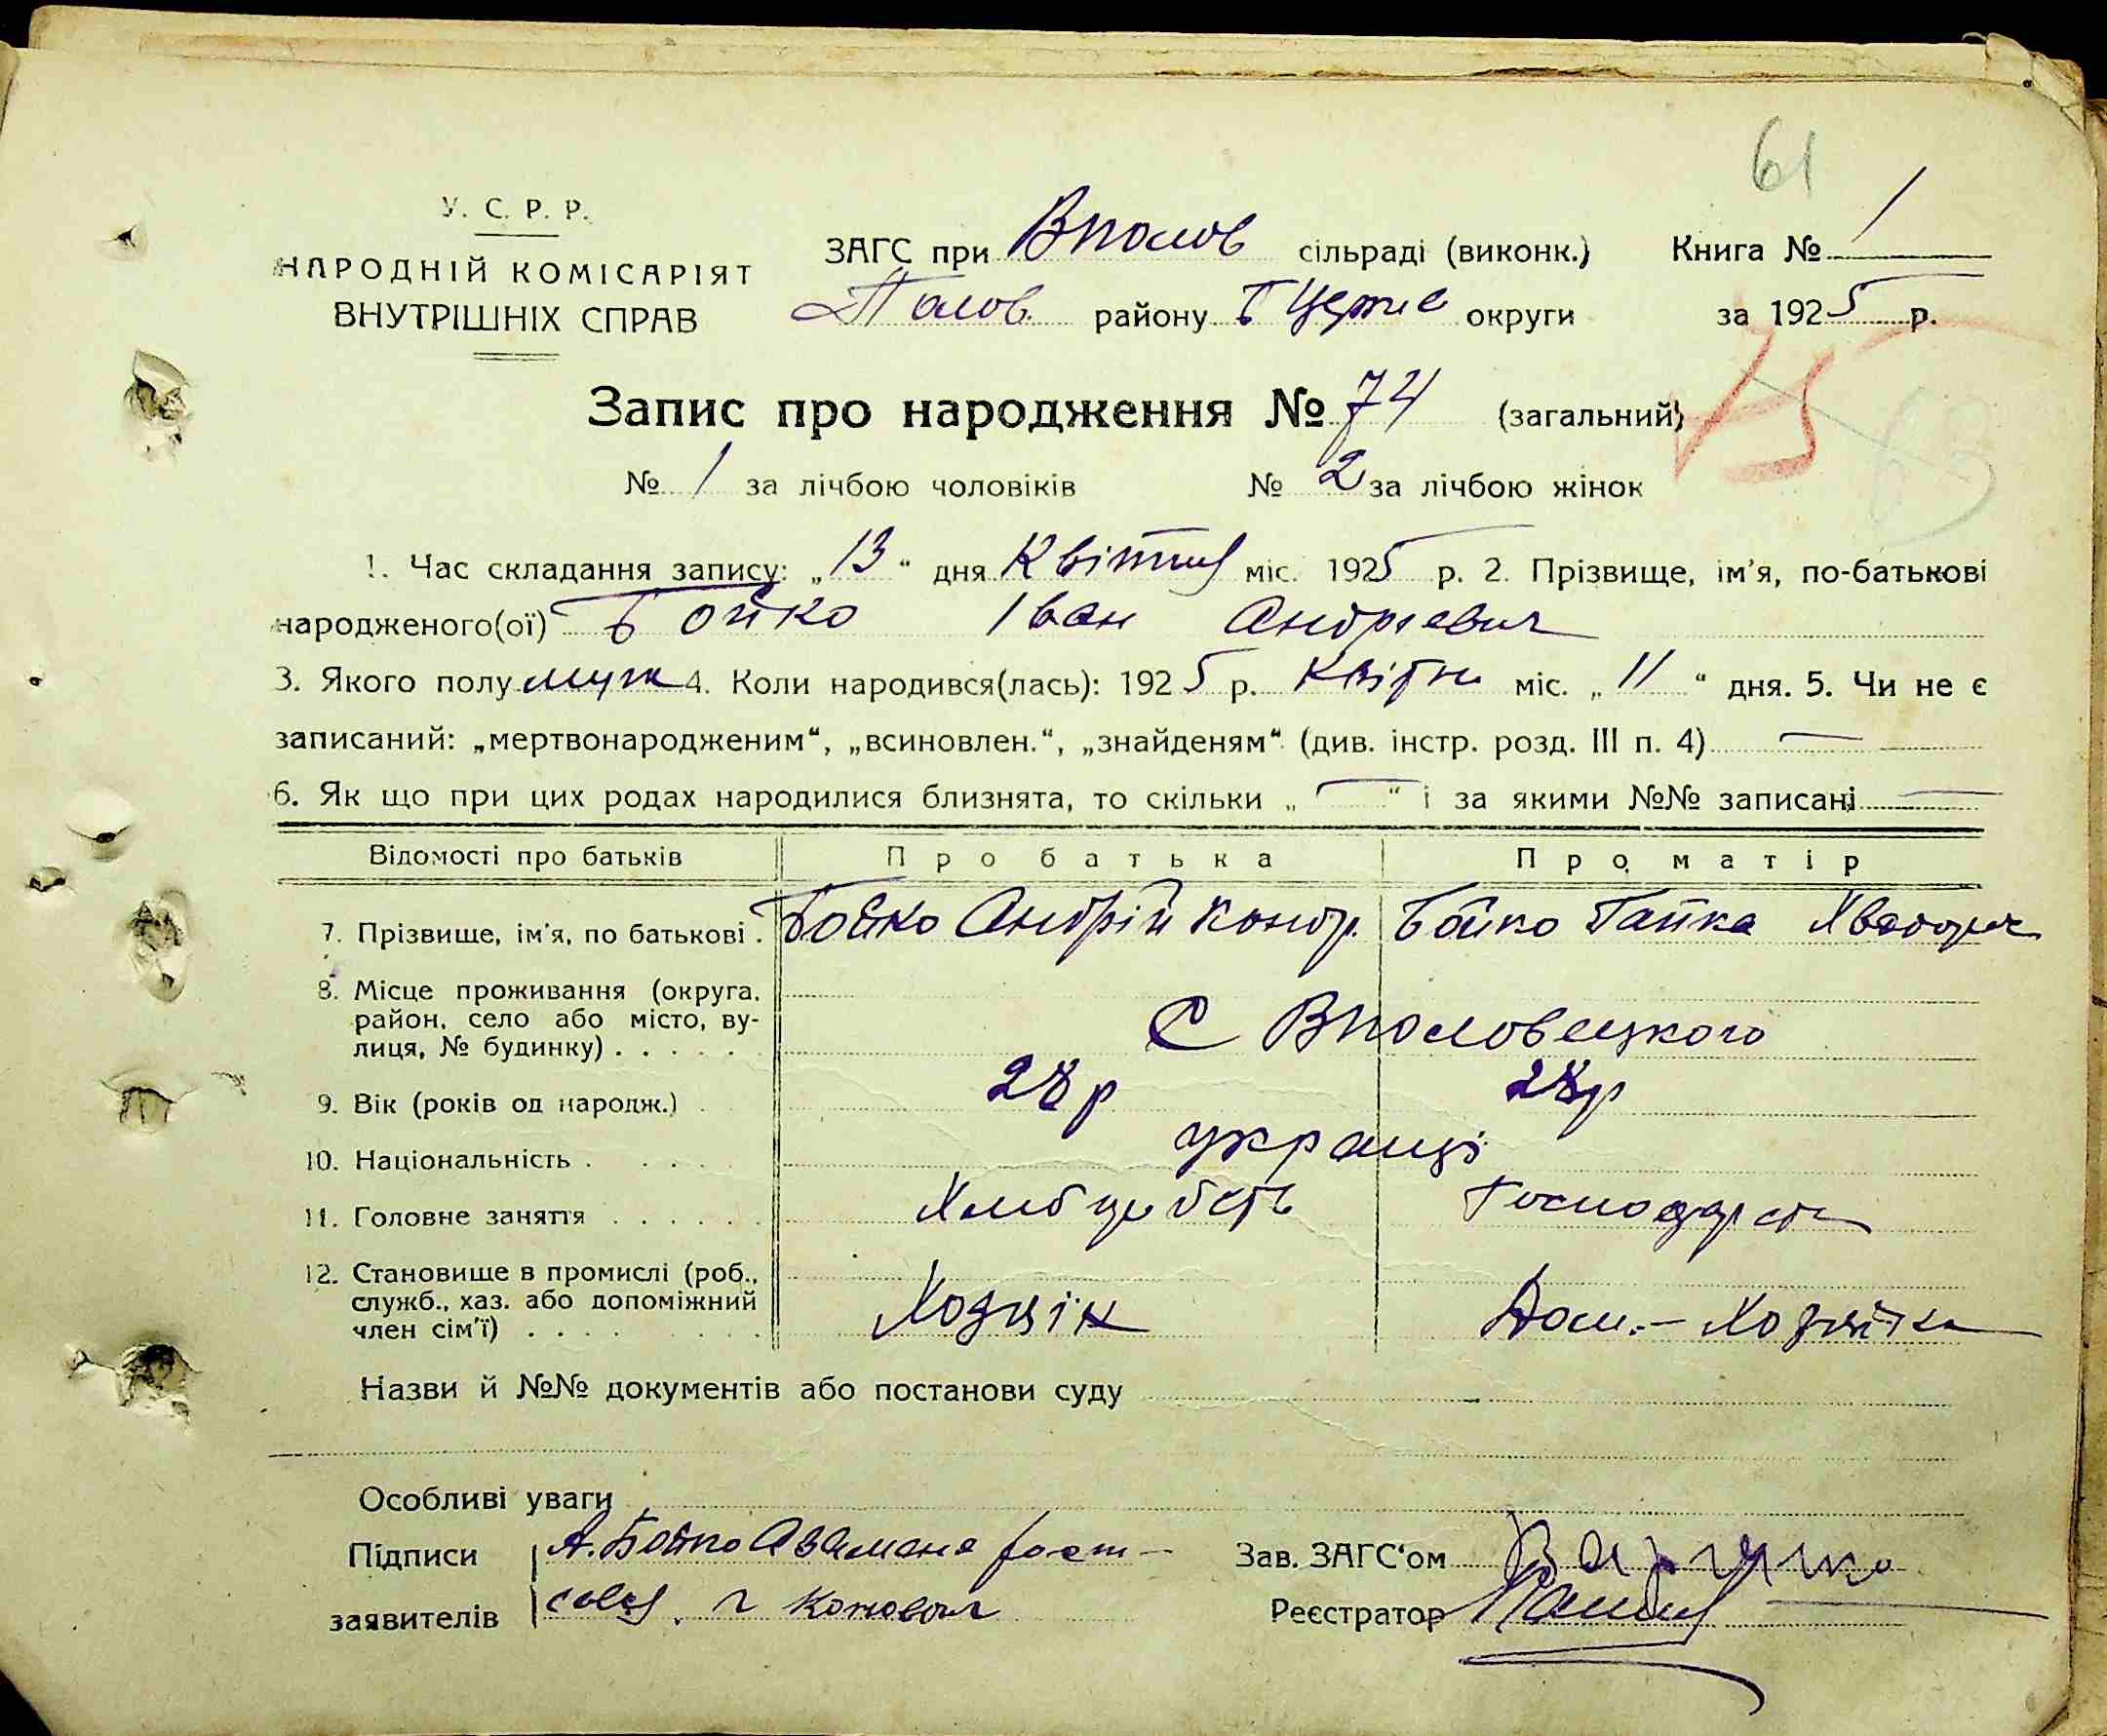 61
У. С. Р. Р.
НАРОДНІЙ КОМІСАРІЯТ
ВНУТРІШНІХ СПРАВ
ЗАГС при Вполов сільраді (виконк.) Книга № 1
Полов. району Б Церкс округи за 1925 р.
Запис про народження № 74 (загальний)
№ 1 за лічбою чоловіків № 2 за лічбою жінок
1. Час складання запису: „13“ дня Квітня міс. 1925 р. 2. Прізвище, ім'я, по-батькові
народженого(ої) Бойко Іван Андрієвич
3. Якого полу муж 4. Коли народився(лась): 1925 р. Квітня міс. „11“ дня. 5. Чи не є
записаний: „мертвонародженим“, „всиновлен.“, „знайденям“ (див. інстр. розд. III п. 4) —
6. Як що при цих родах народилися близнята, то скільки „—“ і за якими №№ записані —
Відомості про батьків Про батька Про матір
7. Прізвище, ім'я, по батькові . Бойко Андрій Кондр. Бойко Гапка
8. Місце проживання (округа, район, село або місто, вулиця, № будинку) . . . . . С Вполовецкого
9. Вік (років од народж.) . 28 р 28р
10. Національність . . . . українці
11. Головне заняття . . . . . . Хлібороб Господарст
12. Становище в промислі (роб., служб., хаз. або допоміжний член сім'ї) . . . . Хозяїн Дом.- Хозяйка
Назви й №№ документів або постанови суду
Особливі уваги
Підписи А. Бойко Зав. ЗАГС'ом
заявителів Реєстратор